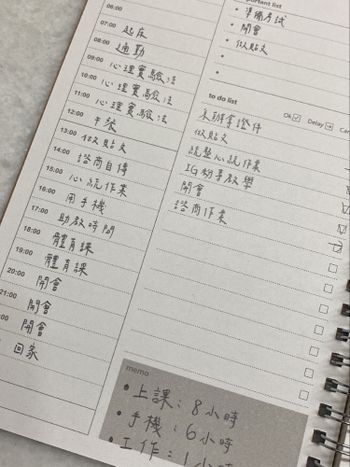 06:00
07:00 起床
08:00 通勤
09:00 心理實驗法
10:00 心理實驗法
11:00 心理實驗法
12:00
13:00 做貼文
14:00 諮商自傳
15:00 心統作業
16:00 用手機
17:00 助教時間
18:00 體育課
19:00 體育課
20:00 開會
21:00 開會
:00 開會
回家
portant list
• 準備考試
• 開會
• 做貼文
•
•
to do list
Ok Delay
拿證件
做貼文
統整心統作業
IG粉專教學
開會
諮商作業
memo
• 上課：8小時
• 手機：6小時
• 工作：1小時